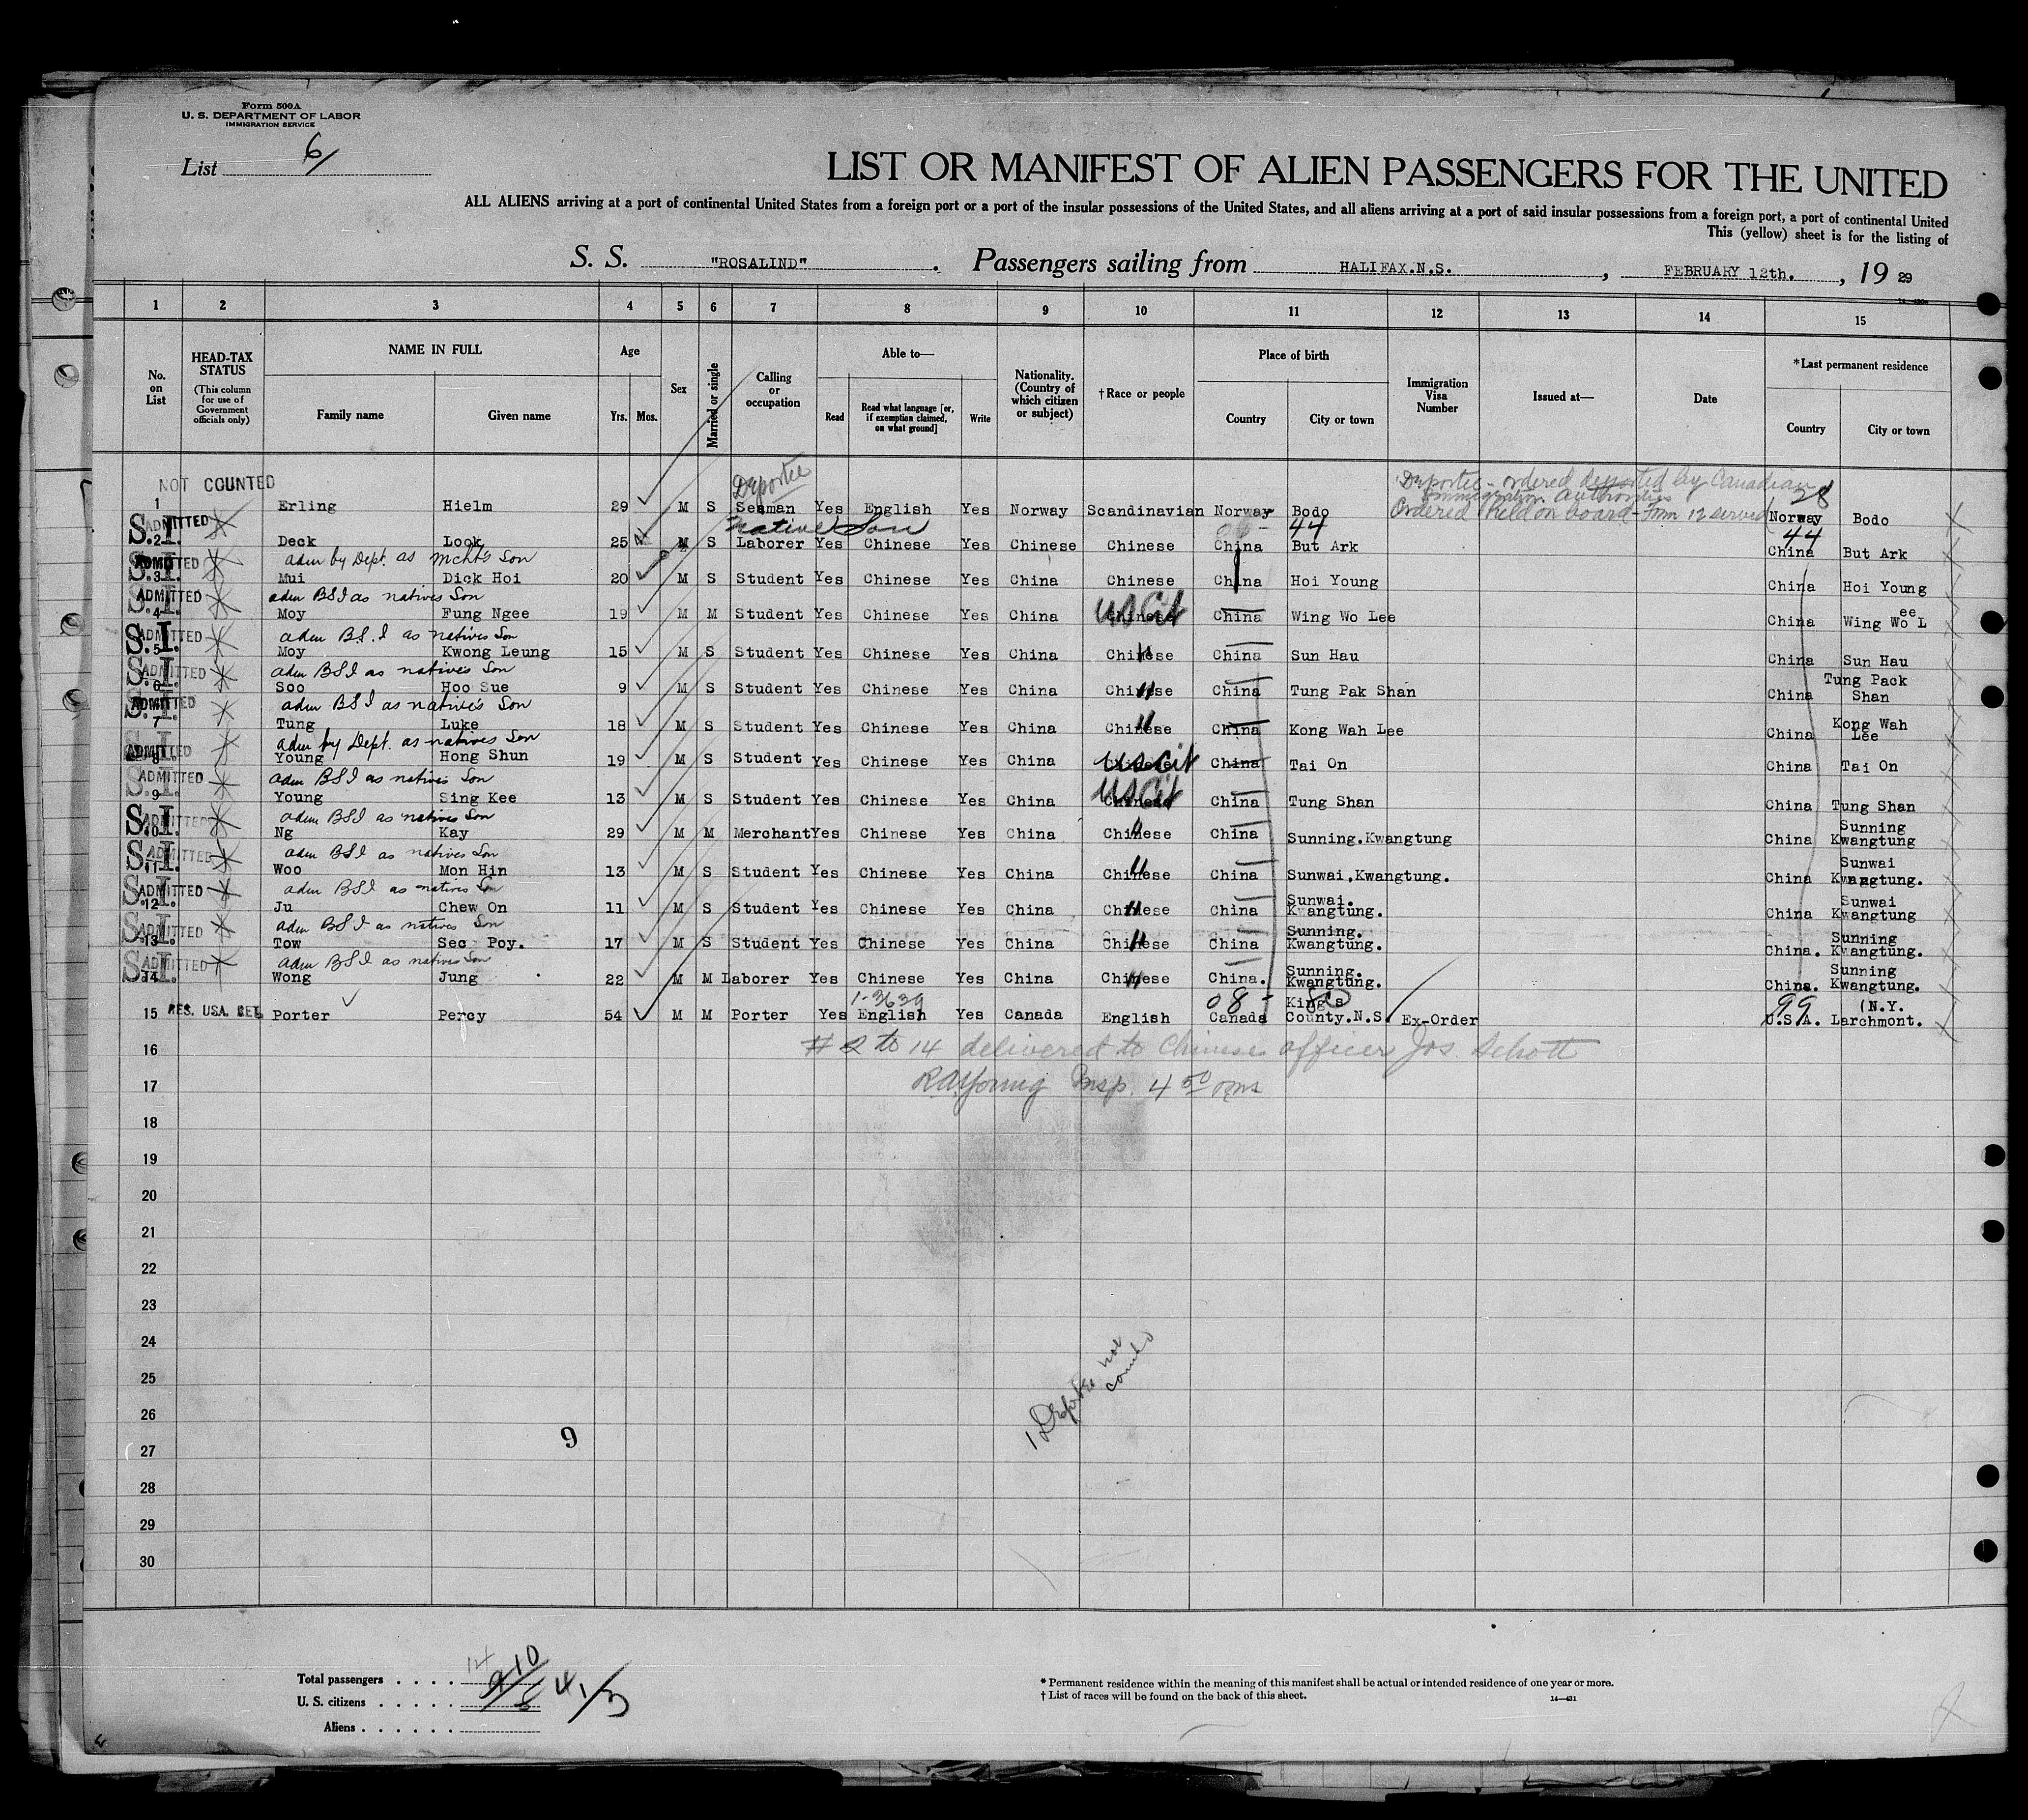 Form 500A
U. S. DEPARTMENT OF LABOR
IMMIGRATION SERVICE
List 6/
LIST OR MANIFEST OF ALIEN PASSENGERS FOR THE UNITED
ALL ALIENS arriving at a port of continental United States from a foreign port or a port of the insular possessions of the United States, and all aliens arriving at a port of said insular possessions from a foreign port, a port of continental United
This (yellow) sheet is for the listing of
S. S. "ROSALIND". Passengers sailing from HALIFAX.N.S., FEBRUARY 12th., 19 29
1 2 3 4 5 6 7 8 9 10 11 12 13 14 15
No. on List
HEAD-TAX STATUS
(This column for use of Government officials only)
NAME IN FULL
Family name Given name
Age
Yrs. Mos.
Sex
Married or single
Calling or occupation
Able to—
Read Read what language [or, if exemption claimed, on what ground] Write
Nationality. (Country of which citizen or subject)
†Race or people
Place of birth
Country City or town
Immigration Visa Number
Issued at—
Date
*Last permanent residence
Country City or town
NOT COUNTED
Deportee
Deportee - ordered deported by Canadian
Immigration Authorities
Ordered held on board - Form 12 served
28
1 Erling Hielm 29 M S Seaman Yes English Yes Norway Scandinavian Norway Bodo Norway Bodo
S.I. ADMITTED native Son 44 44
2 Deck Look 25 M S Laborer Yes Chinese Yes Chinese Chinese China But Ark China But Ark
S.I. ADMITTED adm by Dept. as Mcht's Son
3 Mui Dick Hoi 20 M S Student Yes Chinese Yes China Chinese China Hoi Young China Hoi Young
S.I. ADMITTED adm BSI as natives Son
4 Moy Fung Ngee 19 M M Student Yes Chinese Yes China Chinese US Cit China Wing Wo Lee China Wing Wo Lee
S.I. ADMITTED adm B.S.I as natives Son
5 Moy Kwong Leung 15 M S Student Yes Chinese Yes China Chinese " China Sun Hau China Sun Hau
S.I. ADMITTED adm BSI as native's Son
6 Soo Hoo Sue 9 M S Student Yes Chinese Yes China Chinese " China Tung Pak Shan China Tung Pack Shan
S.I. ADMITTED adm BSI as native's Son
7 Tung Luke 18 M S Student Yes Chinese Yes China Chinese " China Kong Wah Lee China Kong Wah Lee
S.I. ADMITTED adm by Dept. as natives Son
8 Young Hong Shun 19 M S Student Yes Chinese Yes China Chinese US Cit China Tai On China Tai On
S.I. ADMITTED adm BSI as natives Son
9 Young Sing Kee 13 M S Student Yes Chinese Yes China Chinese US Cit China Tung Shan China Tung Shan
S.I. ADMITTED adm BSI as natives Son
10 Ng Kay 29 M M Merchant Yes Chinese Yes China Chinese " China Sunning.Kwangtung China Sunning Kwangtung
S.I. ADMITTED adm BSI as natives Son
11 Woo Mon Hin 13 M S Student Yes Chinese Yes China Chinese " China Sunwai,Kwangtung. China Sunwai Kwangtung.
S.I. ADMITTED adm BSI as natives Son
12 Ju Chew On 11 M S Student Yes Chinese Yes China Chinese " China Sunwai. Kwangtung. China Sunwai Kwangtung
S.I. ADMITTED adm BSI as natives Son
13 Tow Seo Poy. 17 M S Student Yes Chinese Yes China Chinese " China Sunning. Kwangtung. China. Sunning Kwangtung.
S.I. ADMITTED adm BSI as natives Son
14 Wong Jung 22 M M Laborer Yes Chinese Yes China Chinese " China. Sunning. Kwangtung. China. Sunning Kwangtung.
RES. USA. RET. 1-3639 08- 80 99
15 Porter Percy 54 M M Porter Yes English Yes Canada English Canada King's County.N.S. Ex-Order U.S.A. (N.Y. Larchmont.
16 # 2 to 14 delivered to Chinese officer Jos. Schott
17 R.A. Young Insp. 4 50 pm
18
19
20
21
22
23
24
25
26
27
28
29
30
9
1 Deportee not counted
Total passengers . . . . 14
U. S. citizens . . . . .
Aliens . . . . . .
*Permanent residence within the meaning of this manifest shall be actual or intended residence of one year or more.
†List of races will be found on the back of this sheet. 14—431